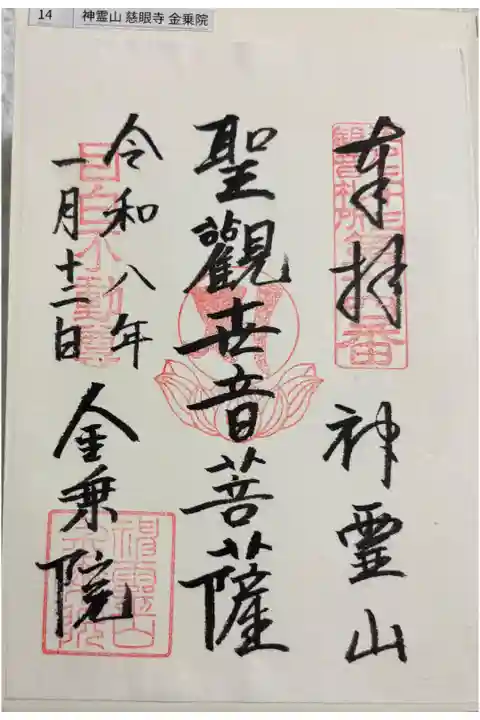 14 神霊山 慈眼寺 金乗院
奉拝
神霊山
聖觀世音菩薩
令和八年
一月十二日
金乗院
目白不動尊